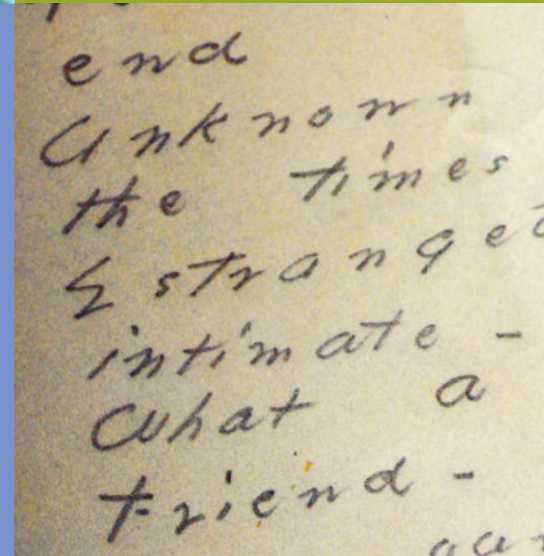 end
Unknown
the times
Estranged
intimate -
What a
friend -